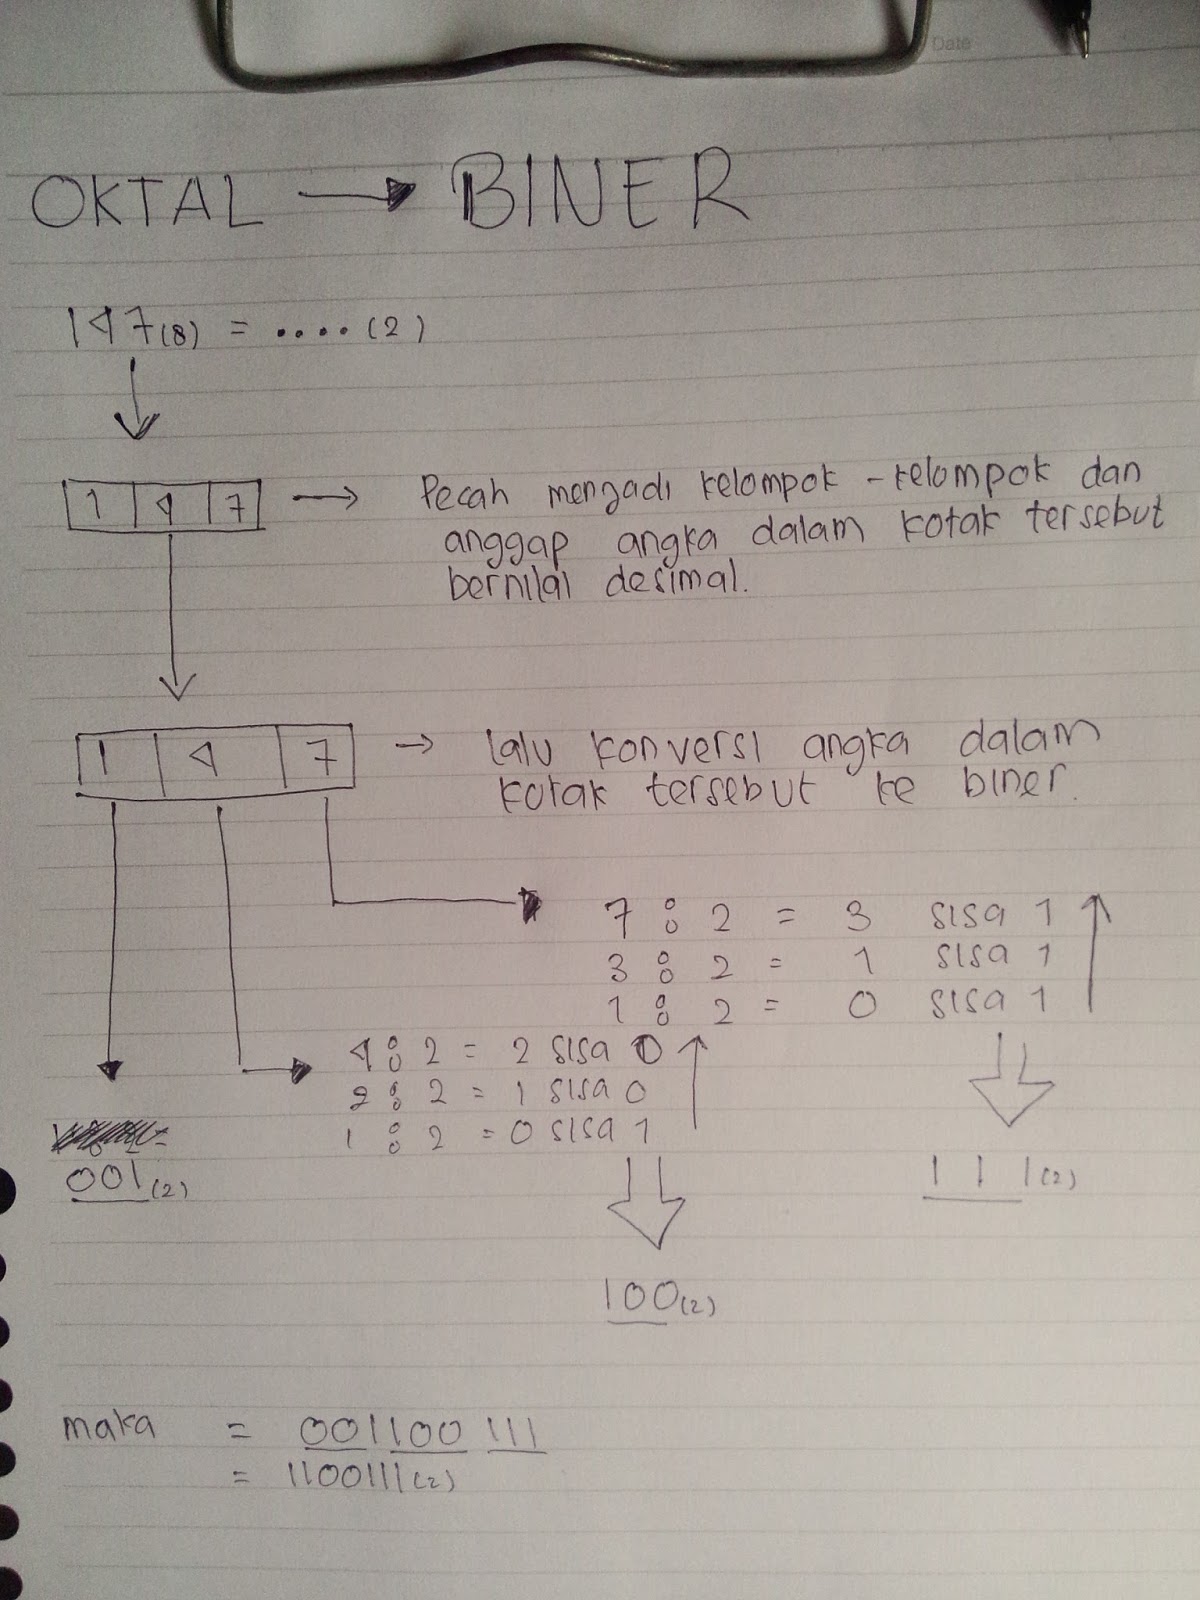 Date
OKTAL → BINER
147(8) = ....(2)
1 4 7 → Pecah mengadi kelompok - kelompok dan
anggap angka dalam kotak tersebut
bernilai desimal.
1 4 7 → lalu konversi angka dalam
kotak tersebut ke biner.
7 : 2 = 3 sisa 1
3 : 2 = 1 sisa 1
1 : 2 = 0 sisa 1
4 : 2 = 2 sisa 0
2 : 2 = 1 sisa 0
1 : 2 = 0 sisa 1
001(2)
111(2)
100(2)
maka = 001100 111
= 1100111(2)